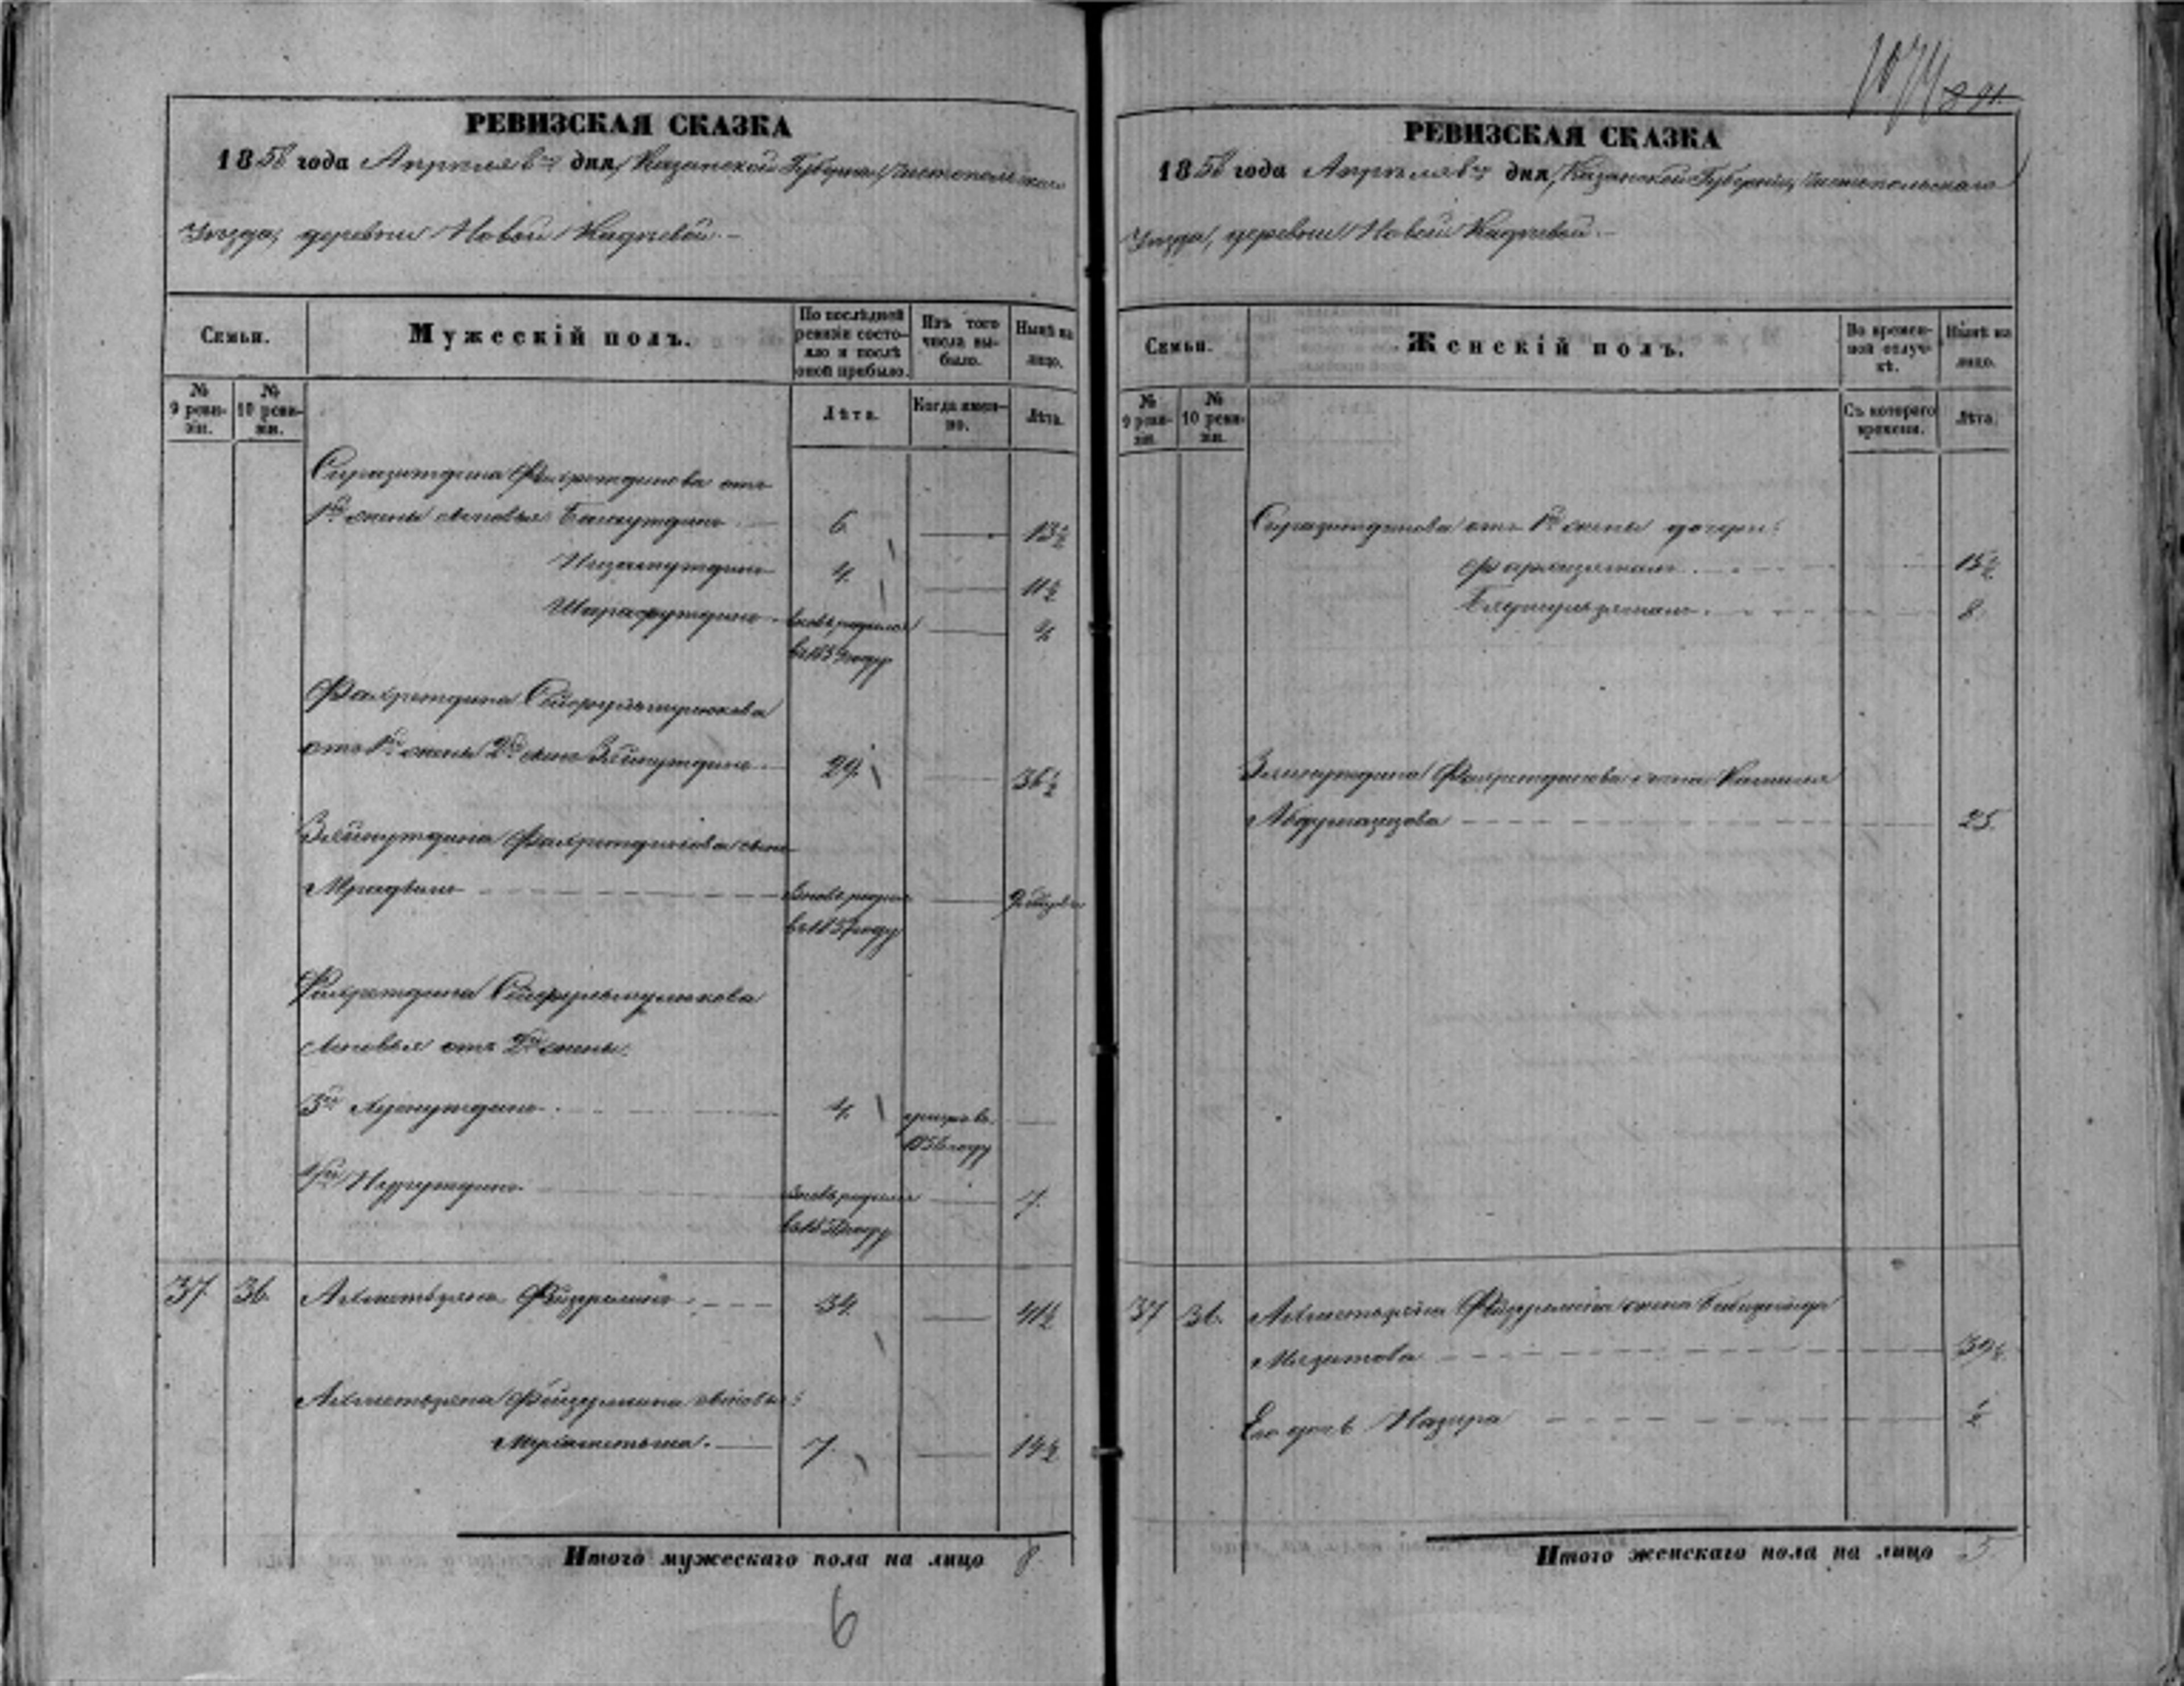 1074 891.
РЕВИЗСКАЯ СКАЗКА
1858 года Апреля 6го дня, Казанской Губернии, Чистопольскаго
Уезда, деревни Новой Кадеевой. –
Семьи.
Мужескій полъ.
По послѣдней ревизіи состояло и послѣ оной прибыло.
Изъ того числа выбыло.
Нынѣ на лицо.
№ 9 ревизіи.
№ 10 ревизіи.
Лѣта.
Когда именно.
Лѣта.
Сиразитдина Фахретдинова отъ
1й жены сыновья: Багаутдинъ 6 13½
Низамутдинъ 4. 11½
Шарафутдинъ вновь родился
въ 1854 году
Фахретдина Сейфульмулюкова
отъ 1й жены 2й сынъ Зейнутдинъ 29. 36½
Зейнутдина Фахретдинова сынъ
вновь родил.
въ 1857 году
Фахретдина Сейфульмулюкова
сыновья отъ 2й жены:
3й 4. умеръ въ
1856 году
4й вновь родился 7.
въ году
37. 36. Ахметьзянъ Фейзуллинъ 34. 41½
Ахметьзяна Фейзуллина сыновья:
7. 14½
Итого мужескаго пола на лицо 8.
6
РЕВИЗСКАЯ СКАЗКА
1858 года Апреля 6го дня, Казанской Губернии, Чистопольскаго
Уезда, деревни Новой Кадеевой. –
Семьи.
Женскій полъ.
Во временной отлучкѣ.
Нынѣ на лицо.
№ 9 ревизіи.
№ 10 ревизіи.
Съ котораго времени.
Лѣта.
Сиразитдинова отъ 1й жены дочери:
15½
8.
Зейнутдина Фахретдинова жена Камиля
Абдулгазизова 25.
37 36. Ахметьзяна Фейзуллина жена
39½
Его дочь Назира ½
Итого женскаго пола на лицо 5